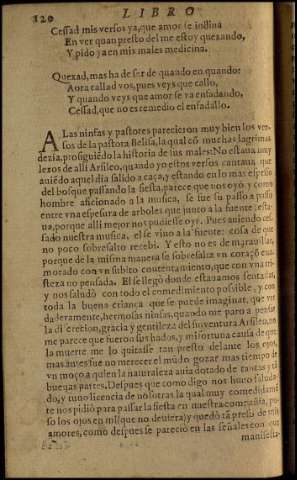 120 LIBRO
Cessad mis versos ya, que amor se indina
En ver quan presto del me estoy quexando,
Y pido ya en mis males medicina.
Quexad, mas ha de ser de quando en quando:
Aora callad vos, pues veys que callo,
Y quando veys que amor se va enfadando,
Cessad, que no es remedio el enfadallo.
A Las ninfas y pastores parecieron muy bien los ver-
sos de la pastora Belisa, la qual cõ muchas lagrimas
dezia, prosiguiẽdo la historia de sus males: No estaua muy
lexos de alli Arsileo, quando yo estos versos cantaua, que
auiẽdo aquel dia salido a caça, y estando en lo mas espesso
del bosque passando la siesta, parece que nos oyò y como
hombre aficionado a la musica, se fue su passo a passo
entre vna espessura de arboles que junto a la fuente esta-
ua, porque alli mejor nos pudiesse oyr. Pues auiendo ces-
sado nuestra musica, el se vino a la fuente: cosa de que
no poco sobresalto recebi. Y esto no es de marauillar,
porque de la misma manera se sobresalta vn coraçõ ena-
morado con vn subito contentamiento, que con vna tri-
steza no pensada. El se llegò donde estauamos sentadas,
y nos saludò con todo el comedimiento possible, y con
toda la buena criança que se puede imaginar, que ver
daderamente, hermosas ninfas, quando me paro a pensar
la discrecion, gracia y gentileza del sinventura Arsileo, no
me parece que fueron sus hados, y mi fortuna causa de que
la muerte me lo quitasse tan presto delante los ojos,
mas antes fue no merecer el mũdo gozar mas tiempo de
vn moço a quien la naturaleza auia dotado de tantas y tã
buenas partes. Despues que como digo nos huuo saluda-
do, y tuuo licencia de nosotras la qual muy comedidamẽ
te nos pidiò para passar la siesta en nuestra compañia, pu-
so los ojos en mi (que no deuiera) y quedò tã preso de mis
amores, como despues se pareciò en las señales con que
manifesta-